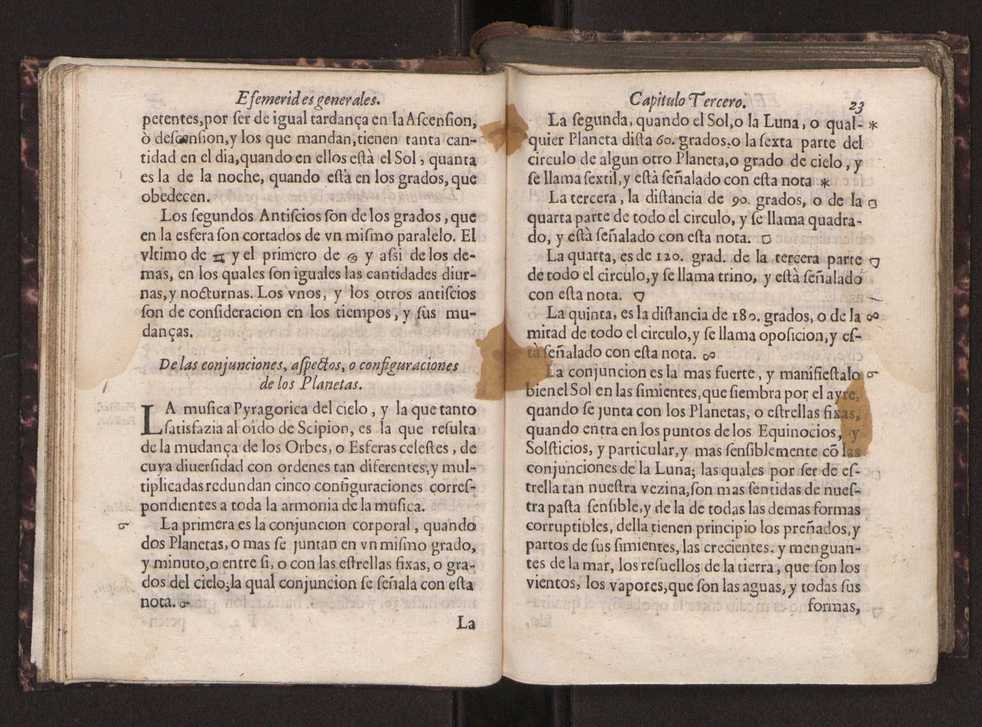 Efemerides generales.
petentes,por ſer de igual tardança en la Aſcenſion,
ò deſcenſion,y los que mandan,tienen tanta can-
tidad en el dia,quando en ellos eſtà el Sol, quanta
es la de la noche, quando eſtà en los grados, que
obedecen.
Los ſegundos Antiſcios ſon de los grados, que
en la esfera ſon cortados de vn miſmo paralelo. El
vltimo de ♊ y el primero de ♋ y aſsi de los de-
mas, en los quales ſon iguales las cantidades diur-
nas,y nocturnas. Los vnos, y los otros antiſcios
ſon de conſideracion en los tiempos, y ſus mu-
danças.
De las conjunciones, aſpectos, o configuraciones
de los Planetas.
LA muſica Pyragorica del cielo, y la que tanto
ſatisfazia al oido de Scipion, es la que reſulta
de la mudança de los Orbes, o Esferas celeſtes, de
cuya diuerſidad con ordenes tan diferentes,y mul-
tiplicadas redundan cinco configuraciones correſ-
pondientes a toda la armonia de la muſica.
☌ La primera es la conjuncion corporal, quando
dos Planetas, o mas ſe juntan en vn miſmo grado,
y minuto,o entre ſi, o con las eſtrellas fixas, o gra-
dos del cielo;la qual conjuncion ſe ſeñala con eſta
nota. ☌
La
Capitulo Tercero. 23
La ſegunda, quando el Sol,o la Luna, o qual- *
quier Planeta diſta 60. grados,o la ſexta parte del
circulo de algun otro Planeta,o grado de cielo, y
ſe llama ſextil,y eſtà ſeñalado con eſta nota *
La tercera, la diſtancia de 90. grados, o de la □
quarta parte de todo el circulo, y ſe llama quadra-
do, y eſtà ſeñalado con eſta nota. □
La quarta, es de 120. grad. de la tercera parte ▽
de todo el circulo,y ſe llama trino, y eſtà ſeñalado
con eſta nota. ▽
La quinta, es la diſtancia de 180. grados, o de la ☍
mitad de todo el circulo,y ſe llama opoſicion,y eſ-
tà ſeñalado con eſta nota. ☍
La conjuncion es la mas fuerte, y manifieſtalo ☌
bien el Sol en las ſimientes,que ſiembra por el ayre,
quando ſe junta con los Planetas, o eſtrellas fixas,
quando entra en los puntos de los Equinocios, y
Solſticios, y particular,y mas ſenſiblemente cõ las
conjunciones de la Luna; las quales por ſer de eſ-
trella tan nueſtra vezina,ſon mas ſentidas de nueſ-
tra paſta ſenſible,y de la de todas las demas formas
corruptibles, della tienen principio los preñados,y
partos de ſus ſimientes, las crecientes. y menguan-
tes de la mar, los reſuellos de la tierra, que ſon los
vientos, los vapores,que ſon las aguas, y todas ſus
formas,